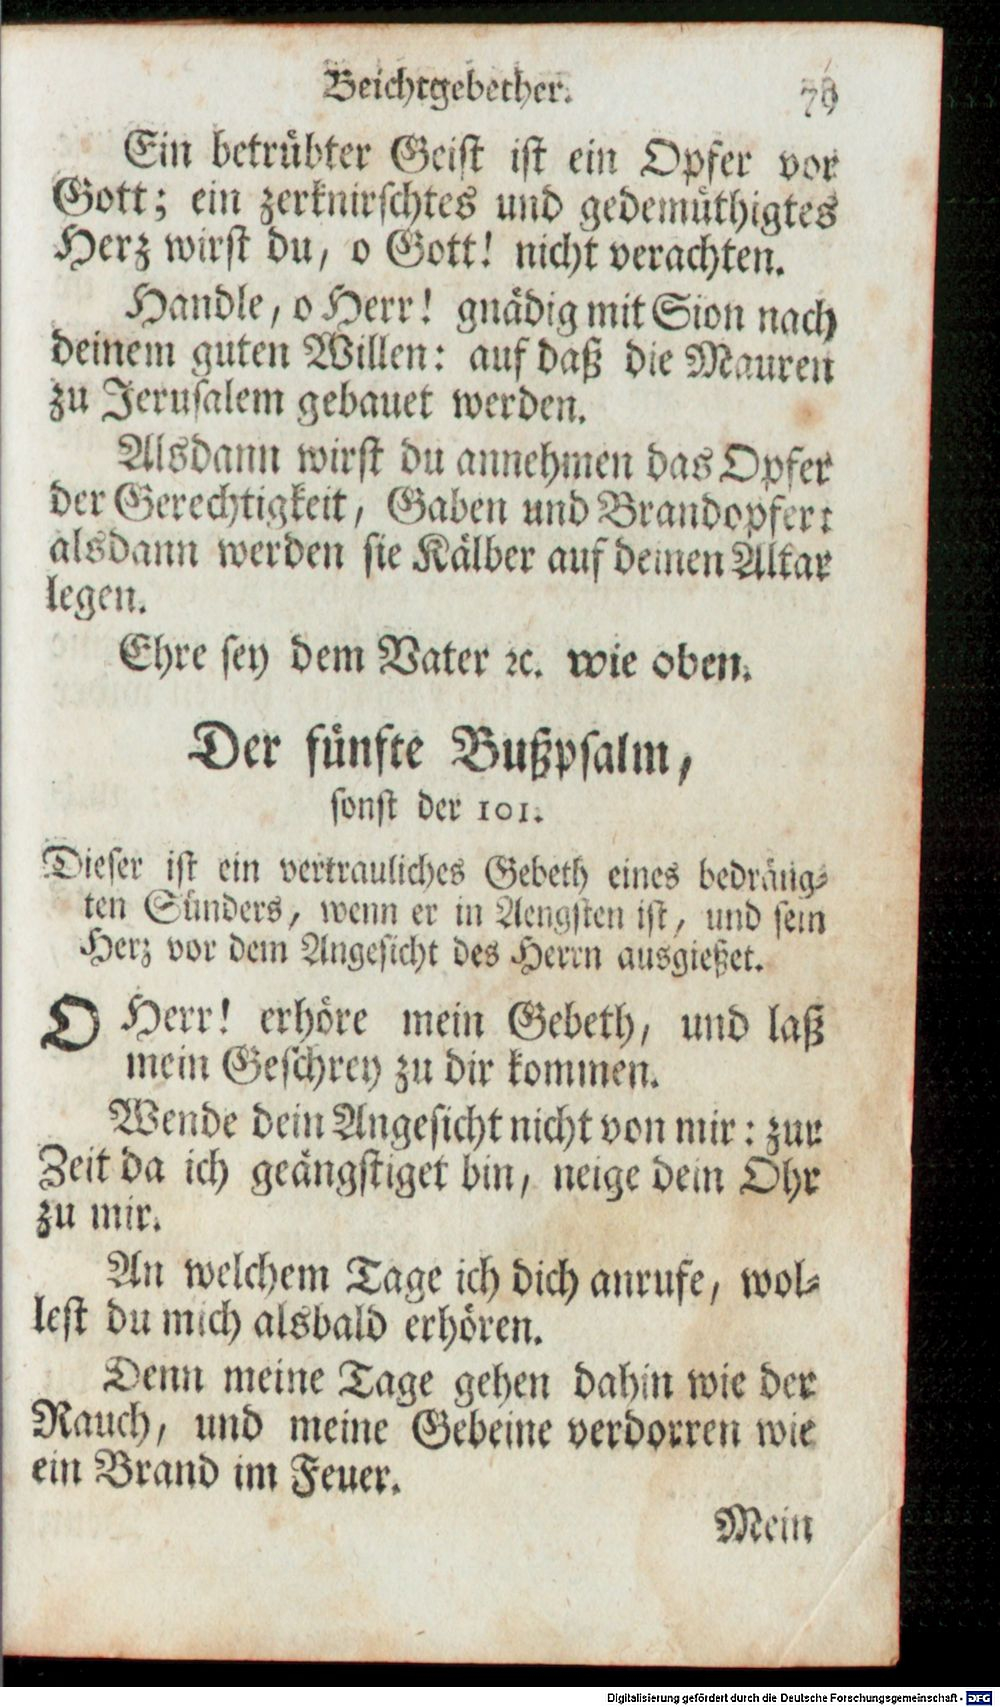 Beichtgebether. 79
Ein betrübter Geist ist ein Opfer vor
Gott; ein zerknirschtes und gedemüthigtes
Herz wirst du, o Gott! nicht verachten.
Handle, o Herr! gnädig mit Sion nach
deinem guten Willen: auf daß die Mauren
zu Jerusalem gebauet werden.
Alsdann wirst du annehmen das Opfer
der Gerechtigkeit, Gaben und Brandopfer:
alsdann werden sie Kälber auf deinen Altar
legen.
Ehre sey dem Vater ꝛc. wie oben.
Der fünfte Bußpsalm,
sonst der 101.
Dieser ist ein vertrauliches Gebeth eines bedräng-
ten Sünders, wenn er in Aengsten ist, und sein
Herz vor dem Angesicht des Herrn ausgießet.
O Herr! erhöre mein Gebeth, und laß
mein Geschrey zu dir kommen.
Wende dein Angesicht nicht von mir: zur
Zeit da ich geängstiget bin, neige dein Ohr
zu mir.
An welchem Tage ich dich anrufe, wol-
lest du mich alsbald erhören.
Denn meine Tage gehen dahin wie der
Rauch, und meine Gebeine verdorren wie
ein Brand im Feuer.
Mein
Digitalisierung gefördert durch die Deutsche Forschungsgemeinschaft - DFG